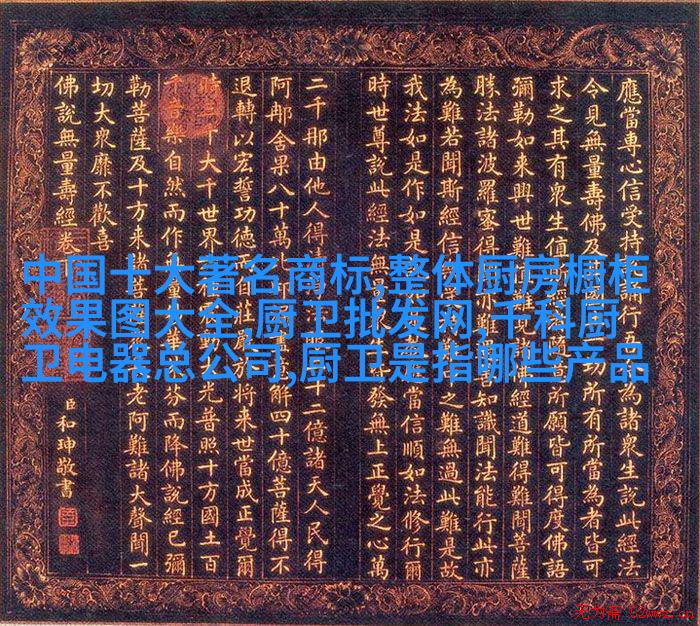 中国十大著名商标,整体厨房橱柜
效果图大全,厨卫批发网,千科厨
卫电器总公司,厨卫是指哪些产品
應當專心信受持誦行為諸眾生說此經法
今見無量壽佛及國切所有所當為者皆可
求之其有眾生值隨意所願皆可得度佛語
彌勒如來興世難難見諸佛經道難得難聞菩薩
勝法諸波羅蜜得亦難善知識聞法能行此亦
為難若聞斯經信之難無過此難是故
我法如是作如是當信順如法修行爾
時世尊說此經法無發無上正覺之心萬
二千那由他人得十二億諸天人民得
阿那舍果八十萬意解四十億菩薩得不
退轉以宏誓功德而自莊將來世當成正覺爾
大千世界動大光普照十方國土百
音樂自然而作芬而降佛說經已彌
勒菩薩及十方來諸菩老阿難諸大聲聞一
切大眾靡不歡喜
佛說無量壽經卷
臣和珅敬書